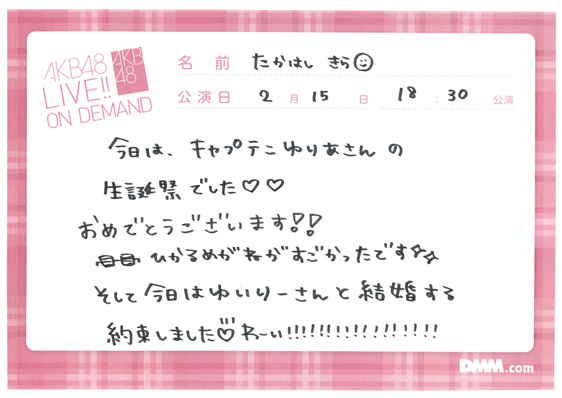 AKB48
LIVE!!
ON DEMAND
AKB
48
名 前 たかはし きら
公演日 2 月 15 日 18 : 30 公演
今日は、キャプテンゆりあさんの
生誕祭でした♡♡
おめでとうございます!!
ひかるめがねがすごかったです☆☆
そして今日はゆいりーさんと結婚する
約束しました♡わーい!!!!!!!!!!!!!!!!!
DMM.com